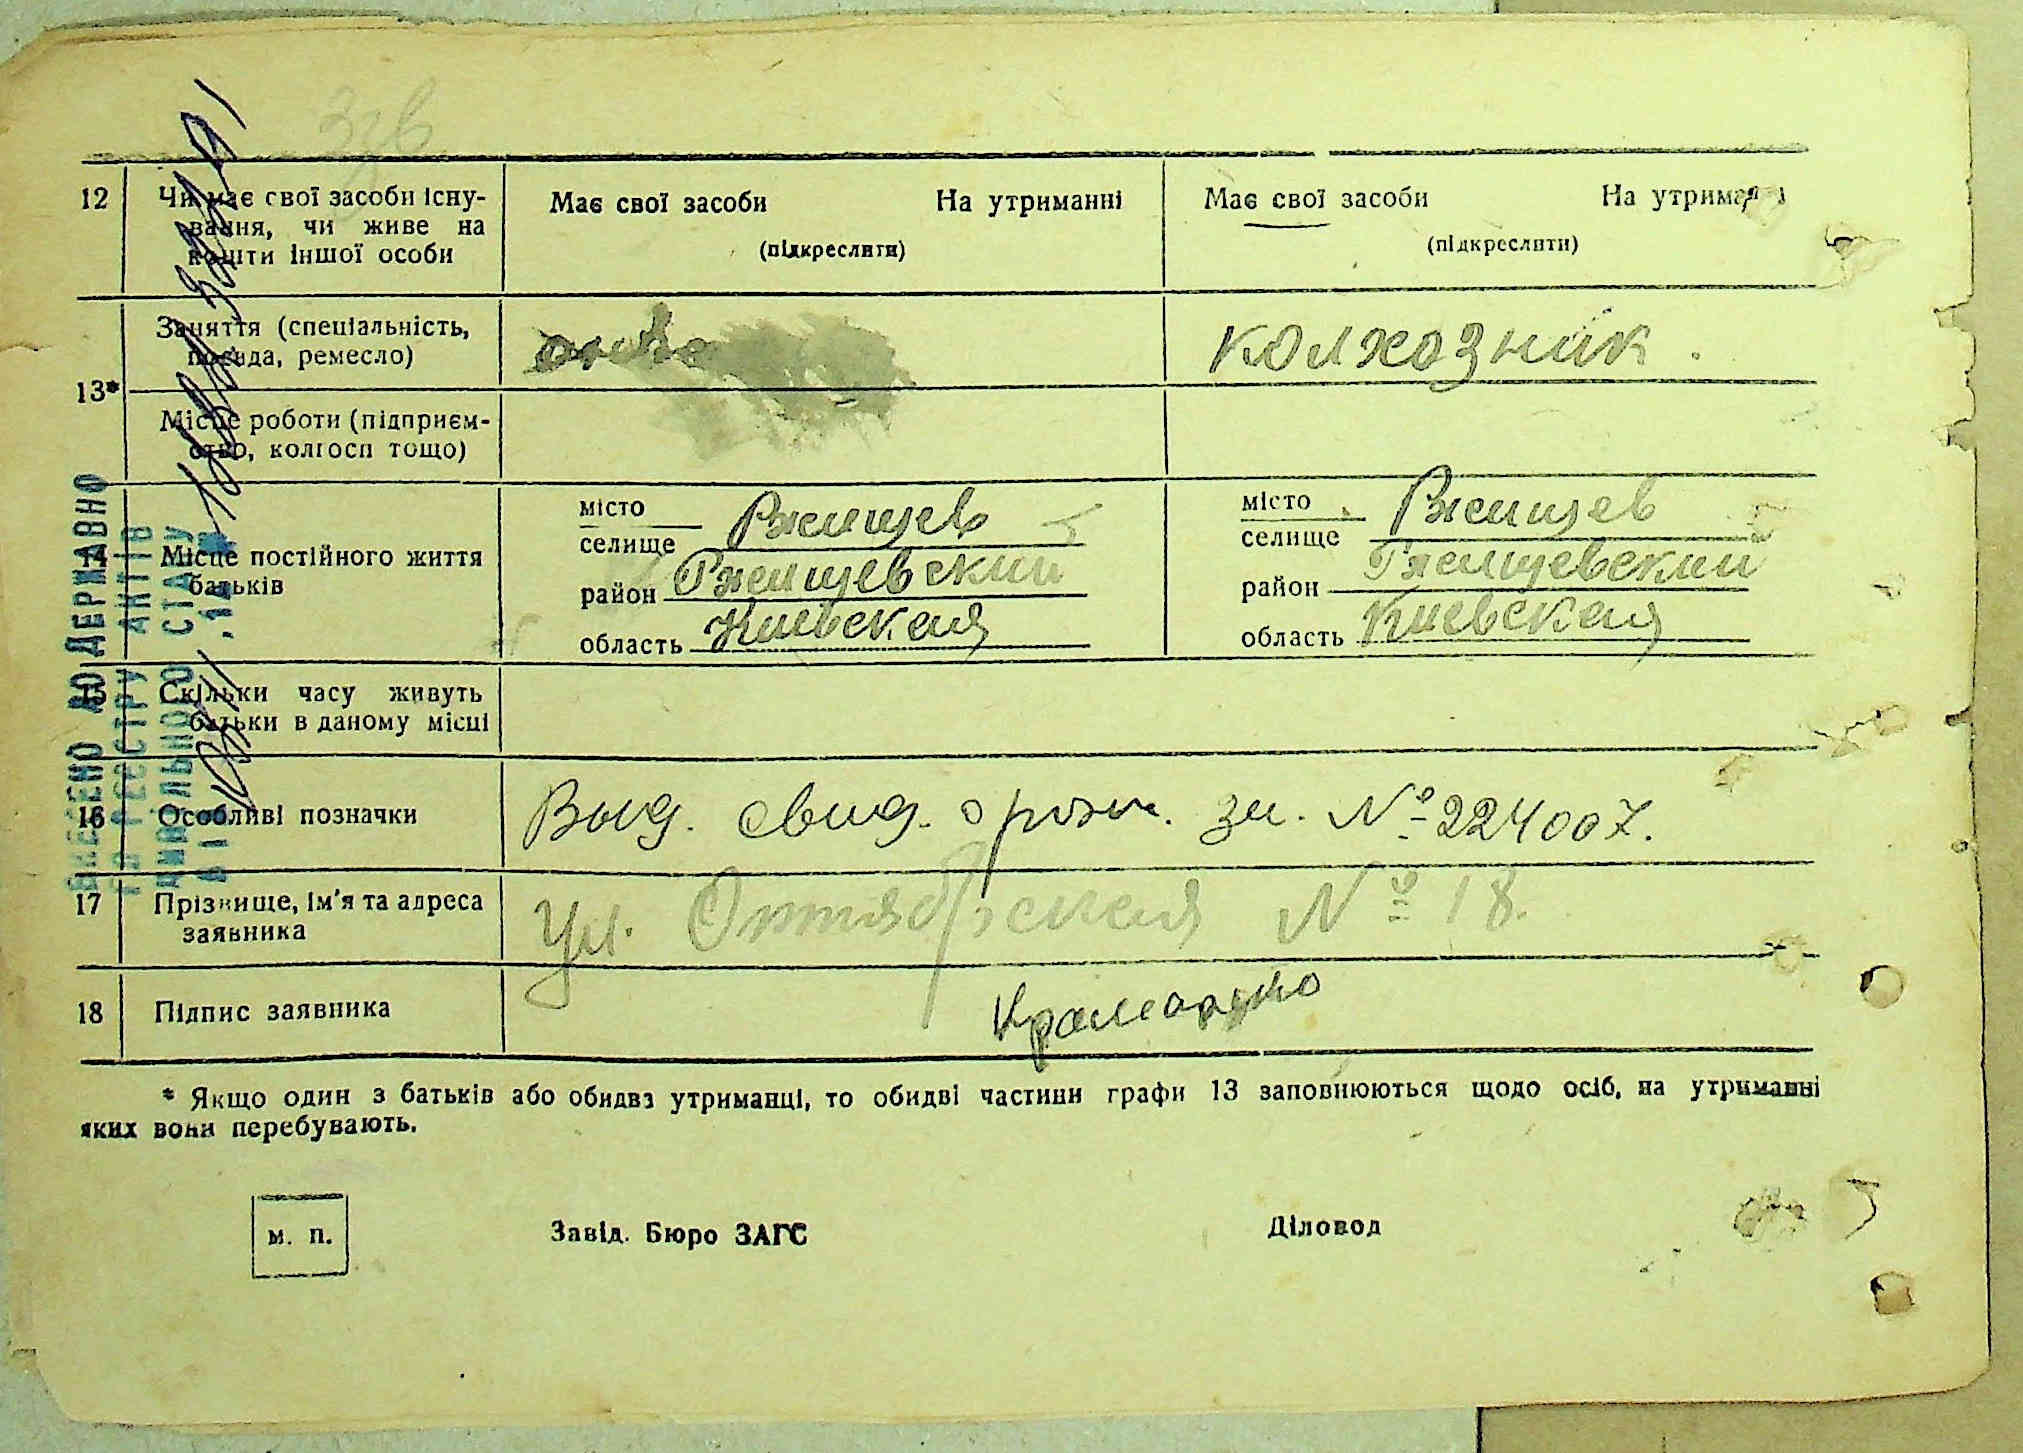 12 Чи має свої засоби існу-
вання, чи живе на
кошти іншої особи
Має свої засоби На утриманні
(підкреслити)
Має свої засоби На утриман
(підкреслити)
13*
Заняття (спеціальність,
посада, ремесло)
колхозник.
Місце роботи (підприєм-
ство, колгосп тощо)
14 Місце постійного життя
батьків
місто
селище Ржищев
район Ржищевский
область Киевская
місто
селище Ржищев
район Ржищевский
область Киевская
15 Скільки часу живуть
батьки в даному місці
16 Особливі позначки
Выд. свид. о рожд. за. № 224007.
17 Прізвище, ім'я та адреса
заявника
Ул. Октябрская № 18.
18 Підпис заявника
* Якщо один з батьків або обидва утриманці, то обидві частини графи 13 заповнюються щодо осіб, на утриманні
яких вони перебувають.
м. п.
Завід. Бюро ЗАГС
Діловод
ВНЕСЕНО ДО ДЕРЖАВНО
ГО РЕЄСТРУ АКТІВ
ЦИВІЛЬНОГО СТАНУ